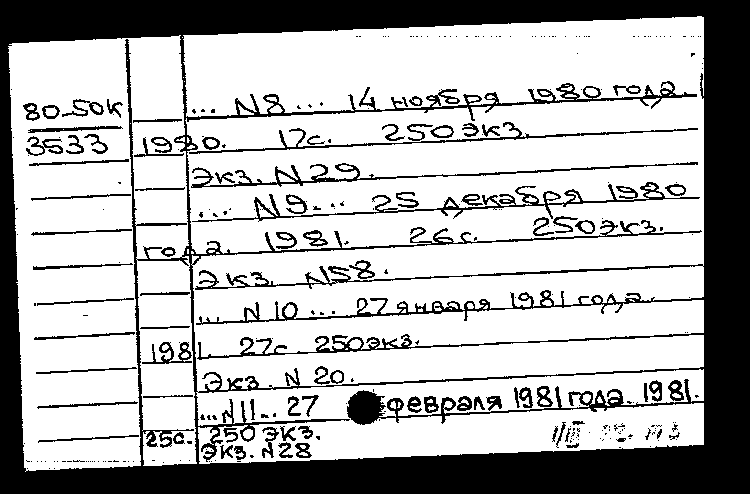 80-50к
3533
... N8 ... 14 ноября 1980 года.
1980. 17с. 250 экз.
Экз. N 29.
... N9 ... 25 декабря 1980
года. 1981. 26 с. 250 экз.
Экз. N58.
... N 10 ... 27 января 1981 года.
1981. 27с. 250 экз.
Экз. N 20.
... N11 ... 27 февраля 1981 года. 1981.
25с. 250 экз.
Экз. N28